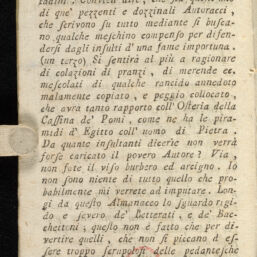 di que' pezzenti e dozzinali Autoracci,
che scrivono su tutto mediante si busca-
no qualche meschino compenso per difen-
dersi dagli insulti d' una fame importuna.
(un terzo) Si sentirà al più a ragionare
di colazioni di pranzi, di merende ec.
mescolati di qualche rancido anneddoto
malamente copiato, e peggio collocato,
che avrà tanto rapporto coll' Osteria della
Cassina de' Pomi, come ne ha le pira-
midi d' Egitto coll' uomo di Pietra.
Da quante insultanti dicerie non verrà
forse caricato il povero Autore? Via,
non fate il viso burbero ed arcigno. Io
non sono niente di tutto quello che pro-
babilmente mi verrete ad imputare. Lon-
gi da questo Almanacco lo sguardo rigi-
do e severo de' Letterati, e de' Bac-
chettoni; questo non è fatto che per di-
vertire quelli, che non si piccano d' es-
sere troppo scrupolosi delle pedantesche